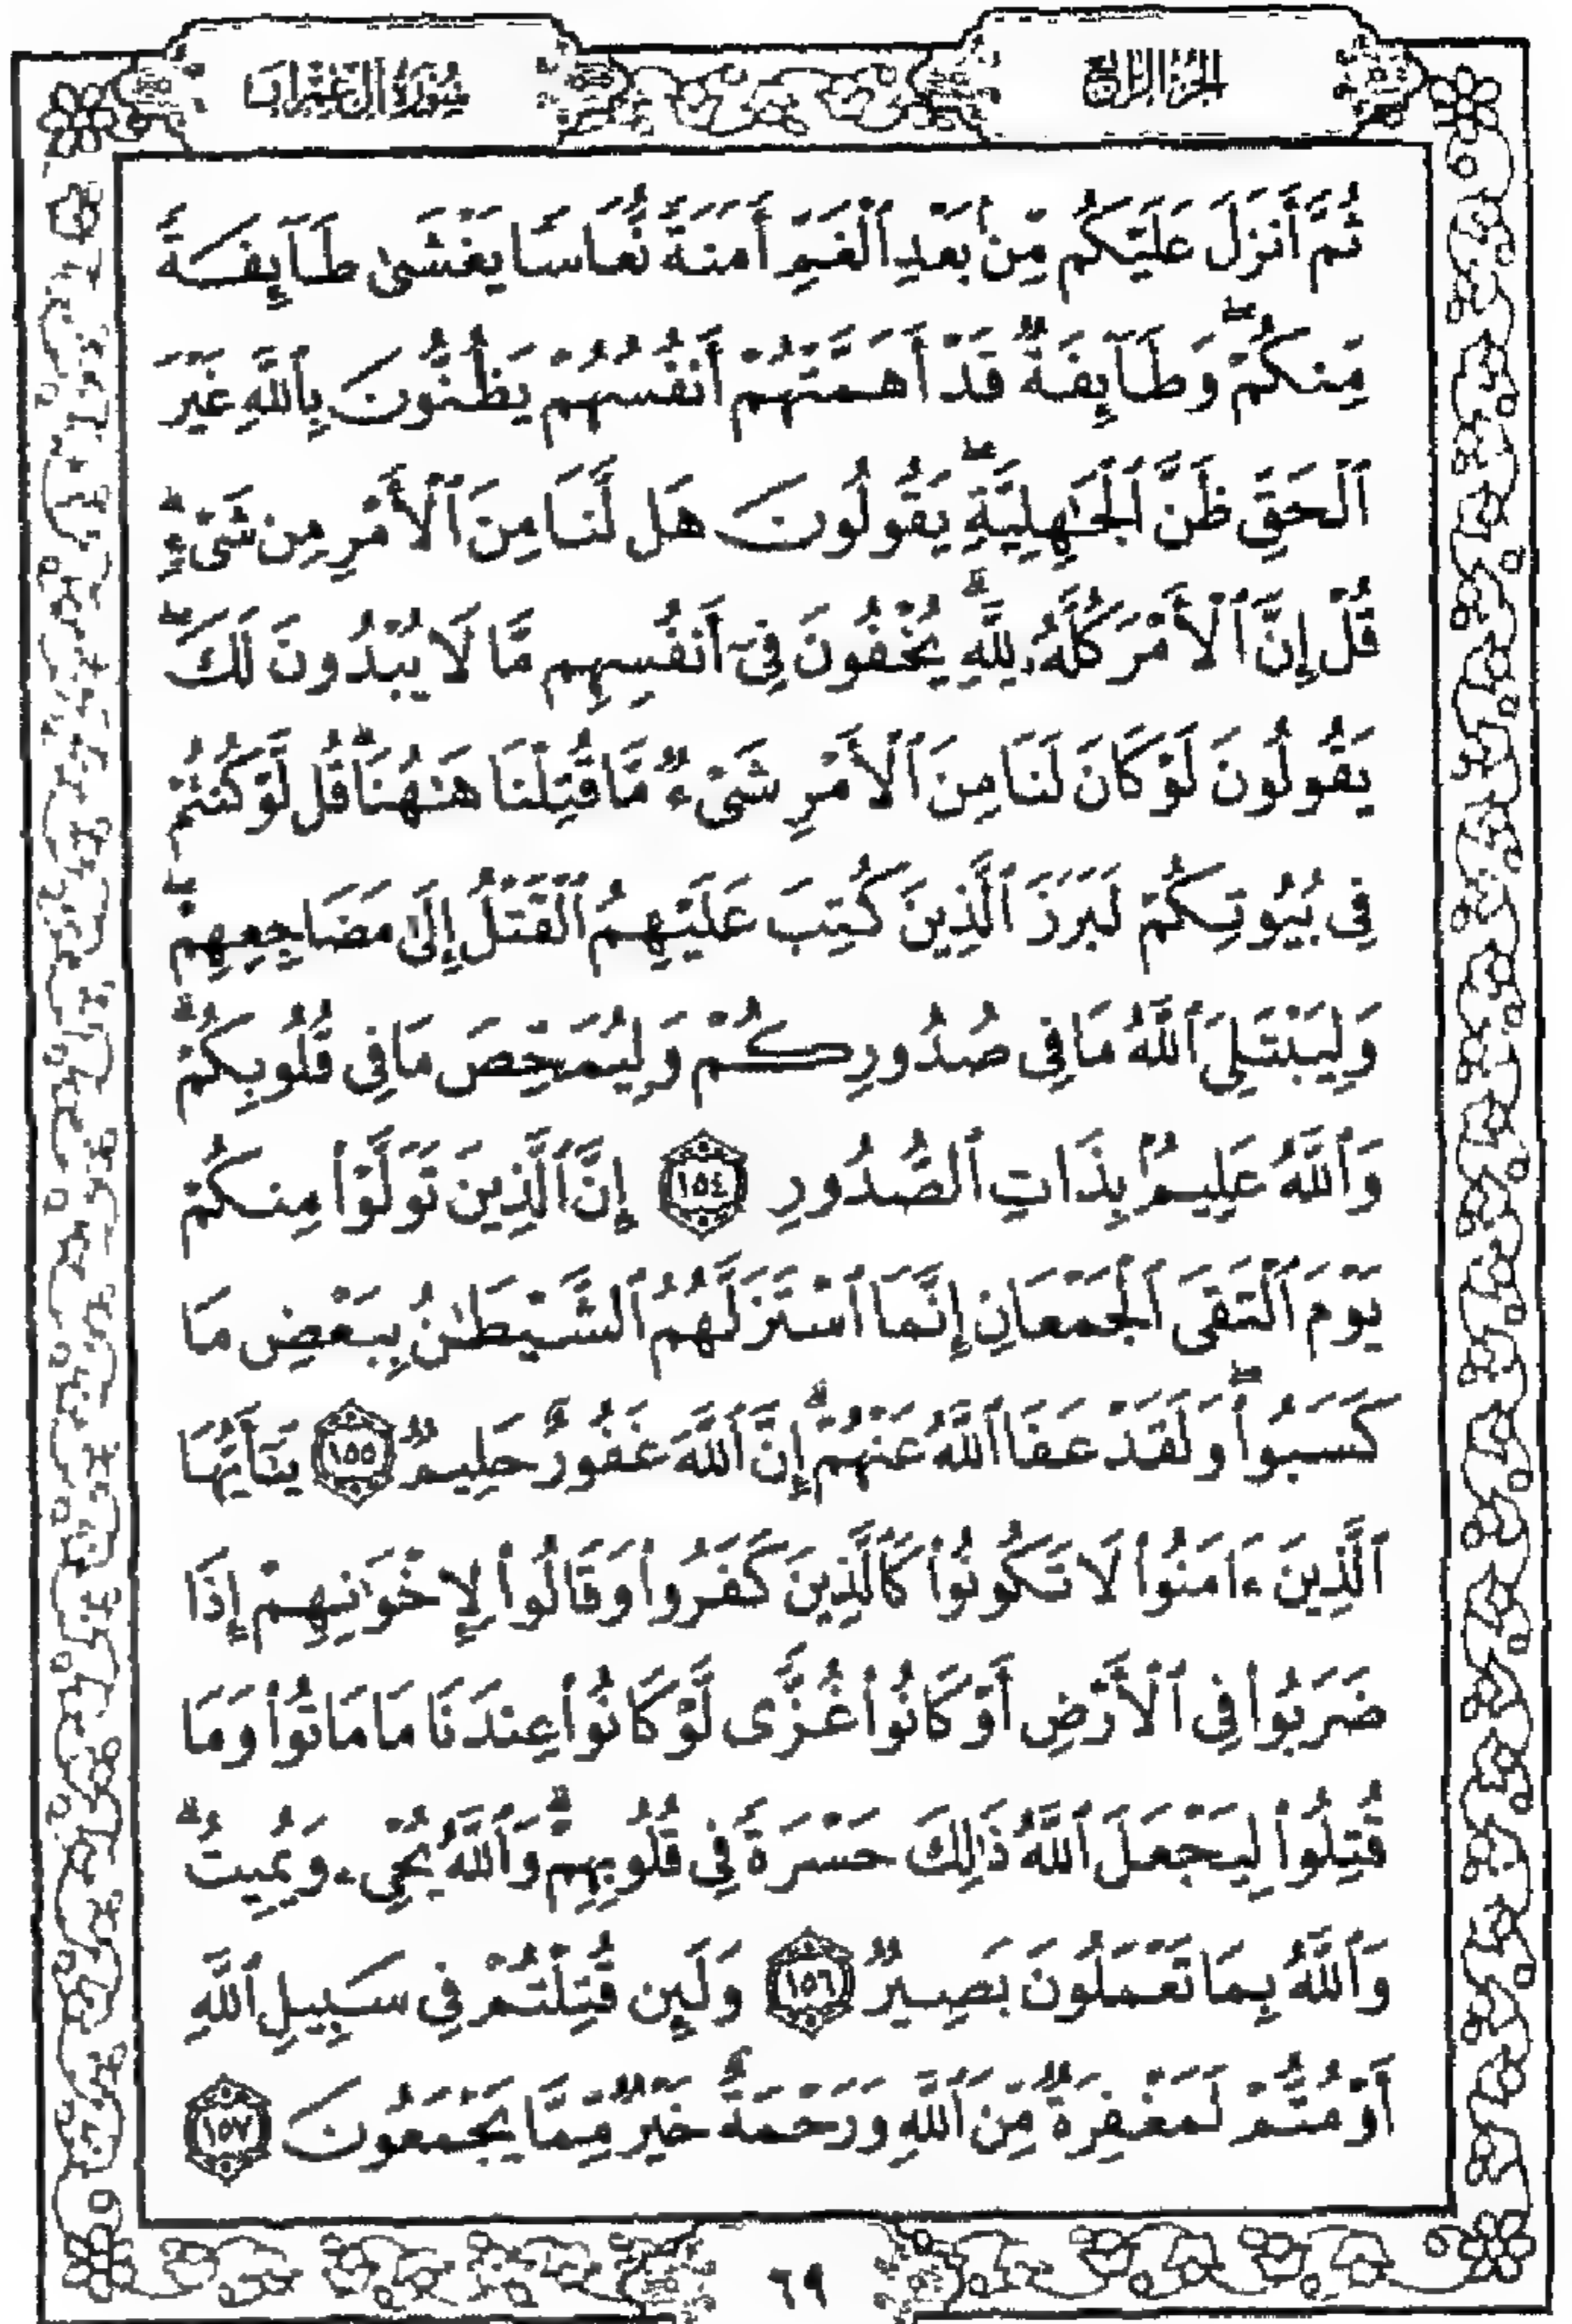 الجزء الرابع
سورة آل عمران
ثُمَّ أَنزَلَ عَلَيْكُم مِّنۢ بَعْدِ ٱلْغَمِّ أَمَنَةً نُّعَاسًا يَغْشَىٰ طَآئِفَةً
مِّنكُمْ ۖ وَطَآئِفَةٌ قَدْ أَهَمَّتْهُمْ أَنفُسُهُمْ يَظُنُّونَ بِٱللَّهِ غَيْرَ
ٱلْحَقِّ ظَنَّ ٱلْجَٰهِلِيَّةِ ۖ يَقُولُونَ هَل لَّنَا مِنَ ٱلْأَمْرِ مِن شَىْءٍ ۗ
قُلْ إِنَّ ٱلْأَمْرَ كُلَّهُۥ لِلَّهِ ۗ يُخْفُونَ فِىٓ أَنفُسِهِم مَّا لَا يُبْدُونَ لَكَ ۖ
يَقُولُونَ لَوْ كَانَ لَنَا مِنَ ٱلْأَمْرِ شَىْءٌ مَّا قُتِلْنَا هَٰهُنَا ۗ قُل لَّوْ كُنتُمْ
فِى بُيُوتِكُمْ لَبَرَزَ ٱلَّذِينَ كُتِبَ عَلَيْهِمُ ٱلْقَتْلُ إِلَىٰ مَضَاجِعِهِمْ ۖ
وَلِيَبْتَلِىَ ٱللَّهُ مَا فِى صُدُورِكُمْ وَلِيُمَحِّصَ مَا فِى قُلُوبِكُمْ ۗ
وَٱللَّهُ عَلِيمٌۢ بِذَاتِ ٱلصُّدُورِ ١٥٤ إِنَّ ٱلَّذِينَ تَوَلَّوْا۟ مِنكُمْ
يَوْمَ ٱلْتَقَى ٱلْجَمْعَانِ إِنَّمَا ٱسْتَزَلَّهُمُ ٱلشَّيْطَٰنُ بِبَعْضِ مَا
كَسَبُوا۟ ۖ وَلَقَدْ عَفَا ٱللَّهُ عَنْهُمْ ۗ إِنَّ ٱللَّهَ غَفُورٌ حَلِيمٌ ١٥٥ يَٰٓأَيُّهَا
ٱلَّذِينَ ءَامَنُوا۟ لَا تَكُونُوا۟ كَٱلَّذِينَ كَفَرُوا۟ وَقَالُوا۟ لِإِخْوَٰنِهِمْ إِذَا
ضَرَبُوا۟ فِى ٱلْأَرْضِ أَوْ كَانُوا۟ غُزًّى لَّوْ كَانُوا۟ عِندَنَا مَا مَاتُوا۟ وَمَا
قُتِلُوا۟ لِيَجْعَلَ ٱللَّهُ ذَٰلِكَ حَسْرَةً فِى قُلُوبِهِمْ ۗ وَٱللَّهُ يُحْىِۦ وَيُمِيتُ ۗ
وَٱللَّهُ بِمَا تَعْمَلُونَ بَصِيرٌ ١٥٦ وَلَئِن قُتِلْتُمْ فِى سَبِيلِ ٱللَّهِ
أَوْ مُتُّمْ لَمَغْفِرَةٌ مِّنَ ٱللَّهِ وَرَحْمَةٌ خَيْرٌ مِّمَّا يَجْمَعُونَ ١٥٧
٦٩